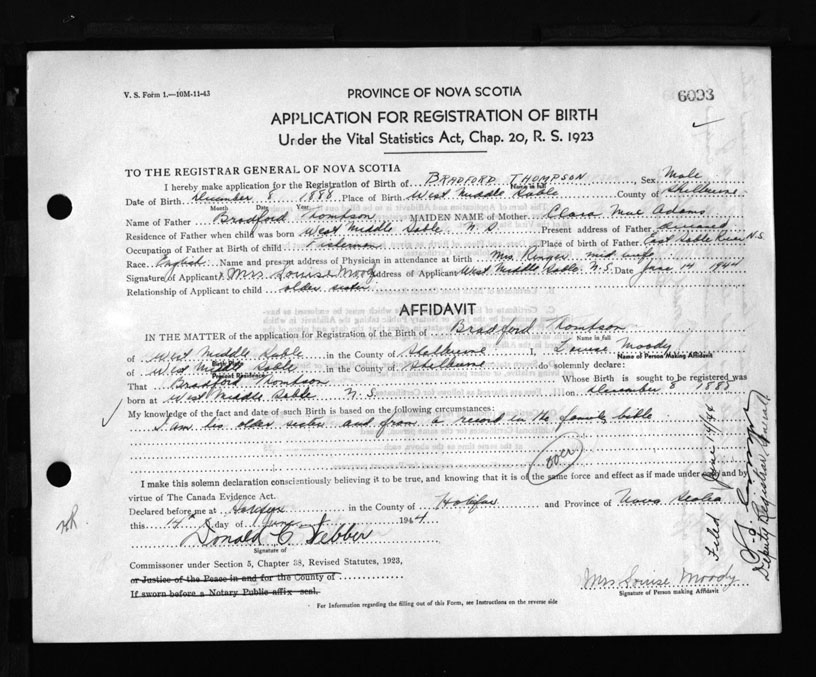 V. S. Form 1.—10M-11-43
PROVINCE OF NOVA SCOTIA
6093
APPLICATION FOR REGISTRATION OF BIRTH
Under the Vital Statistics Act, Chap. 20, R. S. 1923
TO THE REGISTRAR GENERAL OF NOVA SCOTIA
I hereby make application for the Registration of Birth of BRADFORD THOMPSON, Sex Male
Name in full
Date of Birth December 8 1888 Place of Birth West Middle Sable County of Shelburne
Month Day Year
Name of Father Bradford Thompson MAIDEN NAME of Mother Clara Mae Adams
Residence of Father when child was born West Middle Sable N. S. Present address of Father deceased
Occupation of Father at Birth of child Fisherman Place of birth of Father East Sable River N.S.
Race English Name and present address of Physician in attendance at birth Mrs. Ringer mid wife
Signature of Applicant Mrs Louise Moody Address of Applicant West Middle Sable N.S. Date June 14 1944
Relationship of Applicant to child older sister
AFFIDAVIT
IN THE MATTER of the application for Registration of the Birth of Bradford Thompson
Name in full
of West Middle Sable in the County of Shelburne I, Louise Moody
Name of Person Making Affidavit
of West Middle Sable in the County of Shelburne do solemnly declare:
Present Residence
That Bradford Thompson Whose Birth is sought to be registered was
born at West Middle Sable N.S. on December 8 1888
My knowledge of the fact and date of such Birth is based on the following circumstances:
I am his older sister and from a record in the family bible
over
I make this solemn declaration conscientiously believing it to be true, and knowing that it is of the same force and effect as if made under oath and by
virtue of The Canada Evidence Act.
Declared before me at in the County of Halifax and Province of Nova Scotia
this 14 day of June 1944
Donald C. Webber
Signature of
Commissioner under Section 5, Chapter 38, Revised Statutes, 1923,
or Justice of the Peace in and for the County of
If sworn before a Notary Public affix seal.
Mrs Louise Moody
Signature of Person making Affidavit
For Information regarding the filling out of this Form, see Instructions on the reverse side
Filed June 14/44
Deputy Registrar General